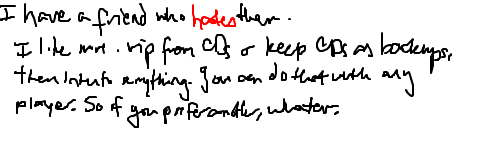 I have a friend who hates them.
I like mine. rip from CDs or keep CDs as backups,
then into anything. You can do that with any
player. So if you prefer another, whatever.